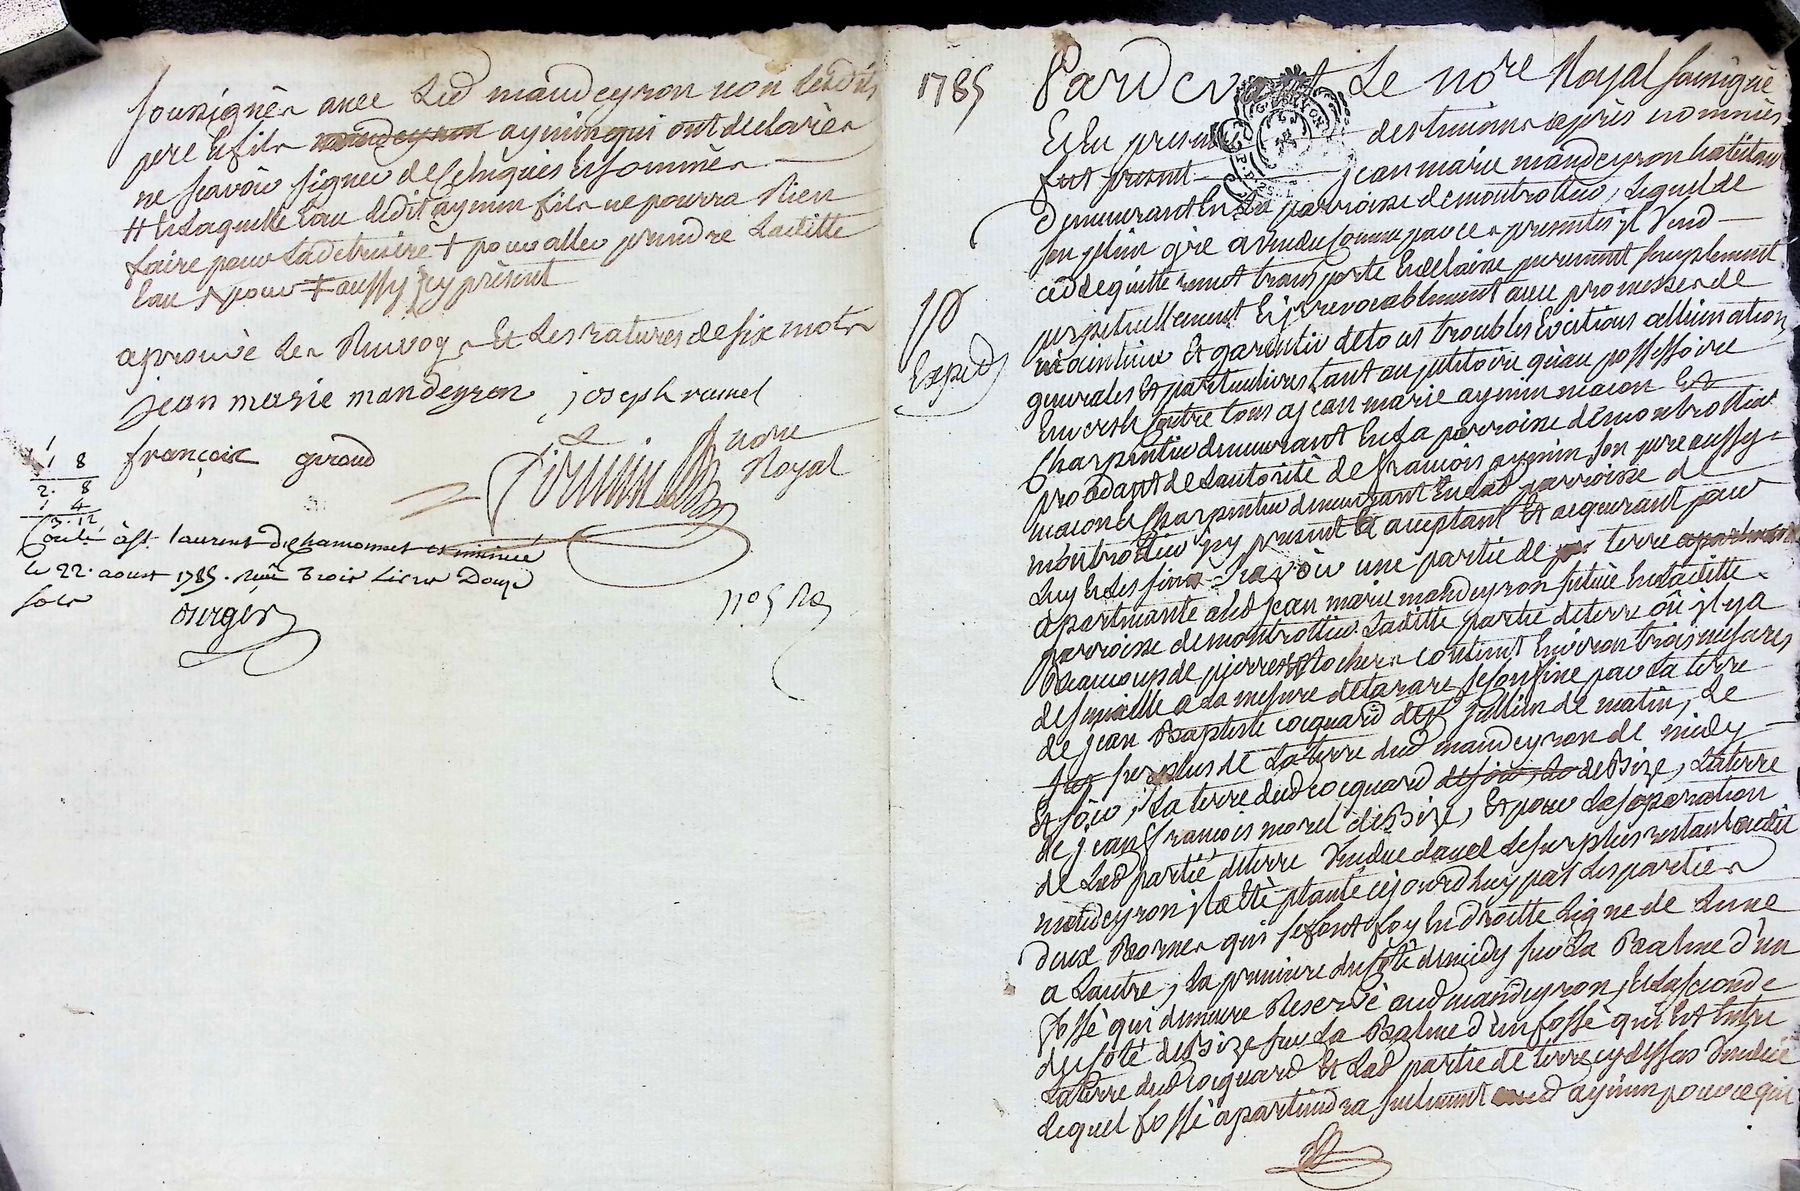 soussignés avec led mandeyron non lesdits
pere et fils mandeyron aymin qui ont declarés
ne scavoir signer de ce enquies et sommés
# et laquelle eau ledit aymin fils ne pourra rien
faire pour la detruire + pour aller prendre laditte
eau ≠ aussy cy présent
aprouvé les renvoys et les ratures de six mots
jean marie mandeyron joseph
françois giroud
nore
Royal
1 8
2. 8
1 4
3. 12
Controlé à St. laurent De chamousset
le 22. aoust 1785. Reçu trois livres Douze
sols
1785
Pardevant Le nore Royal soussigné
Et en presence des temoins après nommés
fut present jean marie mandeyron
demeurant en la parroisse de montrottier, lequel de
son plein gré a vendu comme par ces presentes il vend
cede quitte remet transporte et delaisse purement simplement
perpetuellement et irrevocablement avec promesses de
maintenir et garentir de tous troubles evictions
generales et particulieres tant au petitoire qu'au possessoire
envers et contre tous a jean marie aymin macon et
Charpentier demeurant en la parroisse de montrottier
procedant de l'autorité de françois aymin son pere aussy
macon et Charpentier demeurant en lad parroisse de
montrottier icy present et acceptant et acquerant pour
luy et les siens Scavoir une partie de terre
apartenante aud jean marie mandeyron située en laditte
parroisse de montrottier laditte partie de terre où il y a
beaucoup de pierres et rochers contenant environ trois mesures
de semaille a la mesure de tarare se confine par la terre
de jean Baptiste cocquard de matin, le
surplus de la terre dud mandeyron de midy
et soir, la terre dud cocquard de soir, de de bize, la terre
de jean françois morel de bize, et pour la separation
de lad partie de terre vendue d'avec le surplus restant audit
mandeyron il a été planté cejourd'huy par les parties
deux bornes qui se font foy en droitte ligne de l'une
a l'autre, la premiere du côté de midy sur la Balme d'un
fossé qui demeure reservé aud mandeyron, et la seconde
du coté de bize sur la Balme d'un fossé qui est entre
la terre dud cocquard et lad partie de terre cy dessus vendue
lequel fossé apartiendra seulement aud aymin pour ce qui